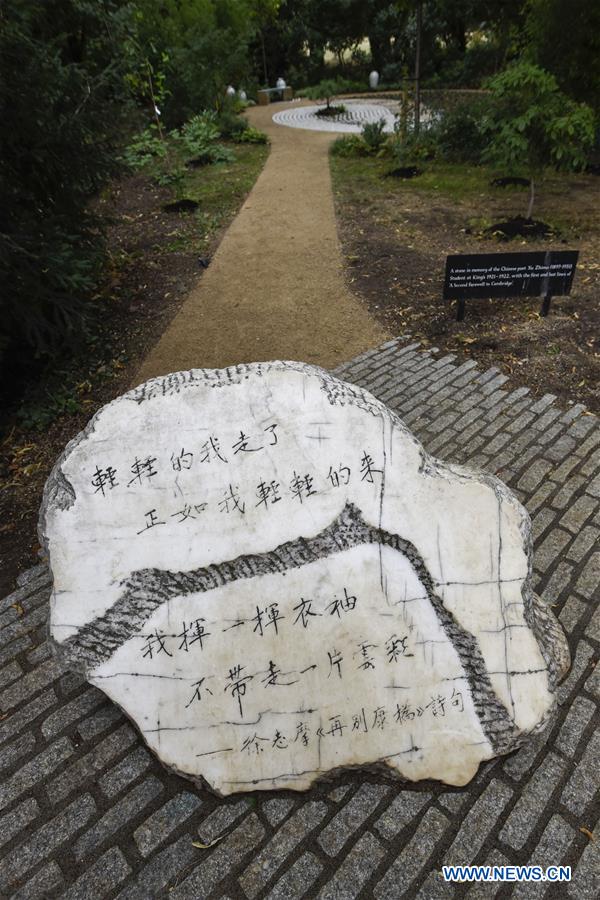 A stone in memory of the Chinese poet Xu Zhimo (1897-1931)
Student at King's 1921-1922, with the first and last lines of
'A Second Farewell to Cambridge'
輕輕的我走了
正如我輕輕的來
我揮一揮衣袖
不帶走一片雲彩
—徐志摩《再別康橋》詩句
WWW.NEWS.CN